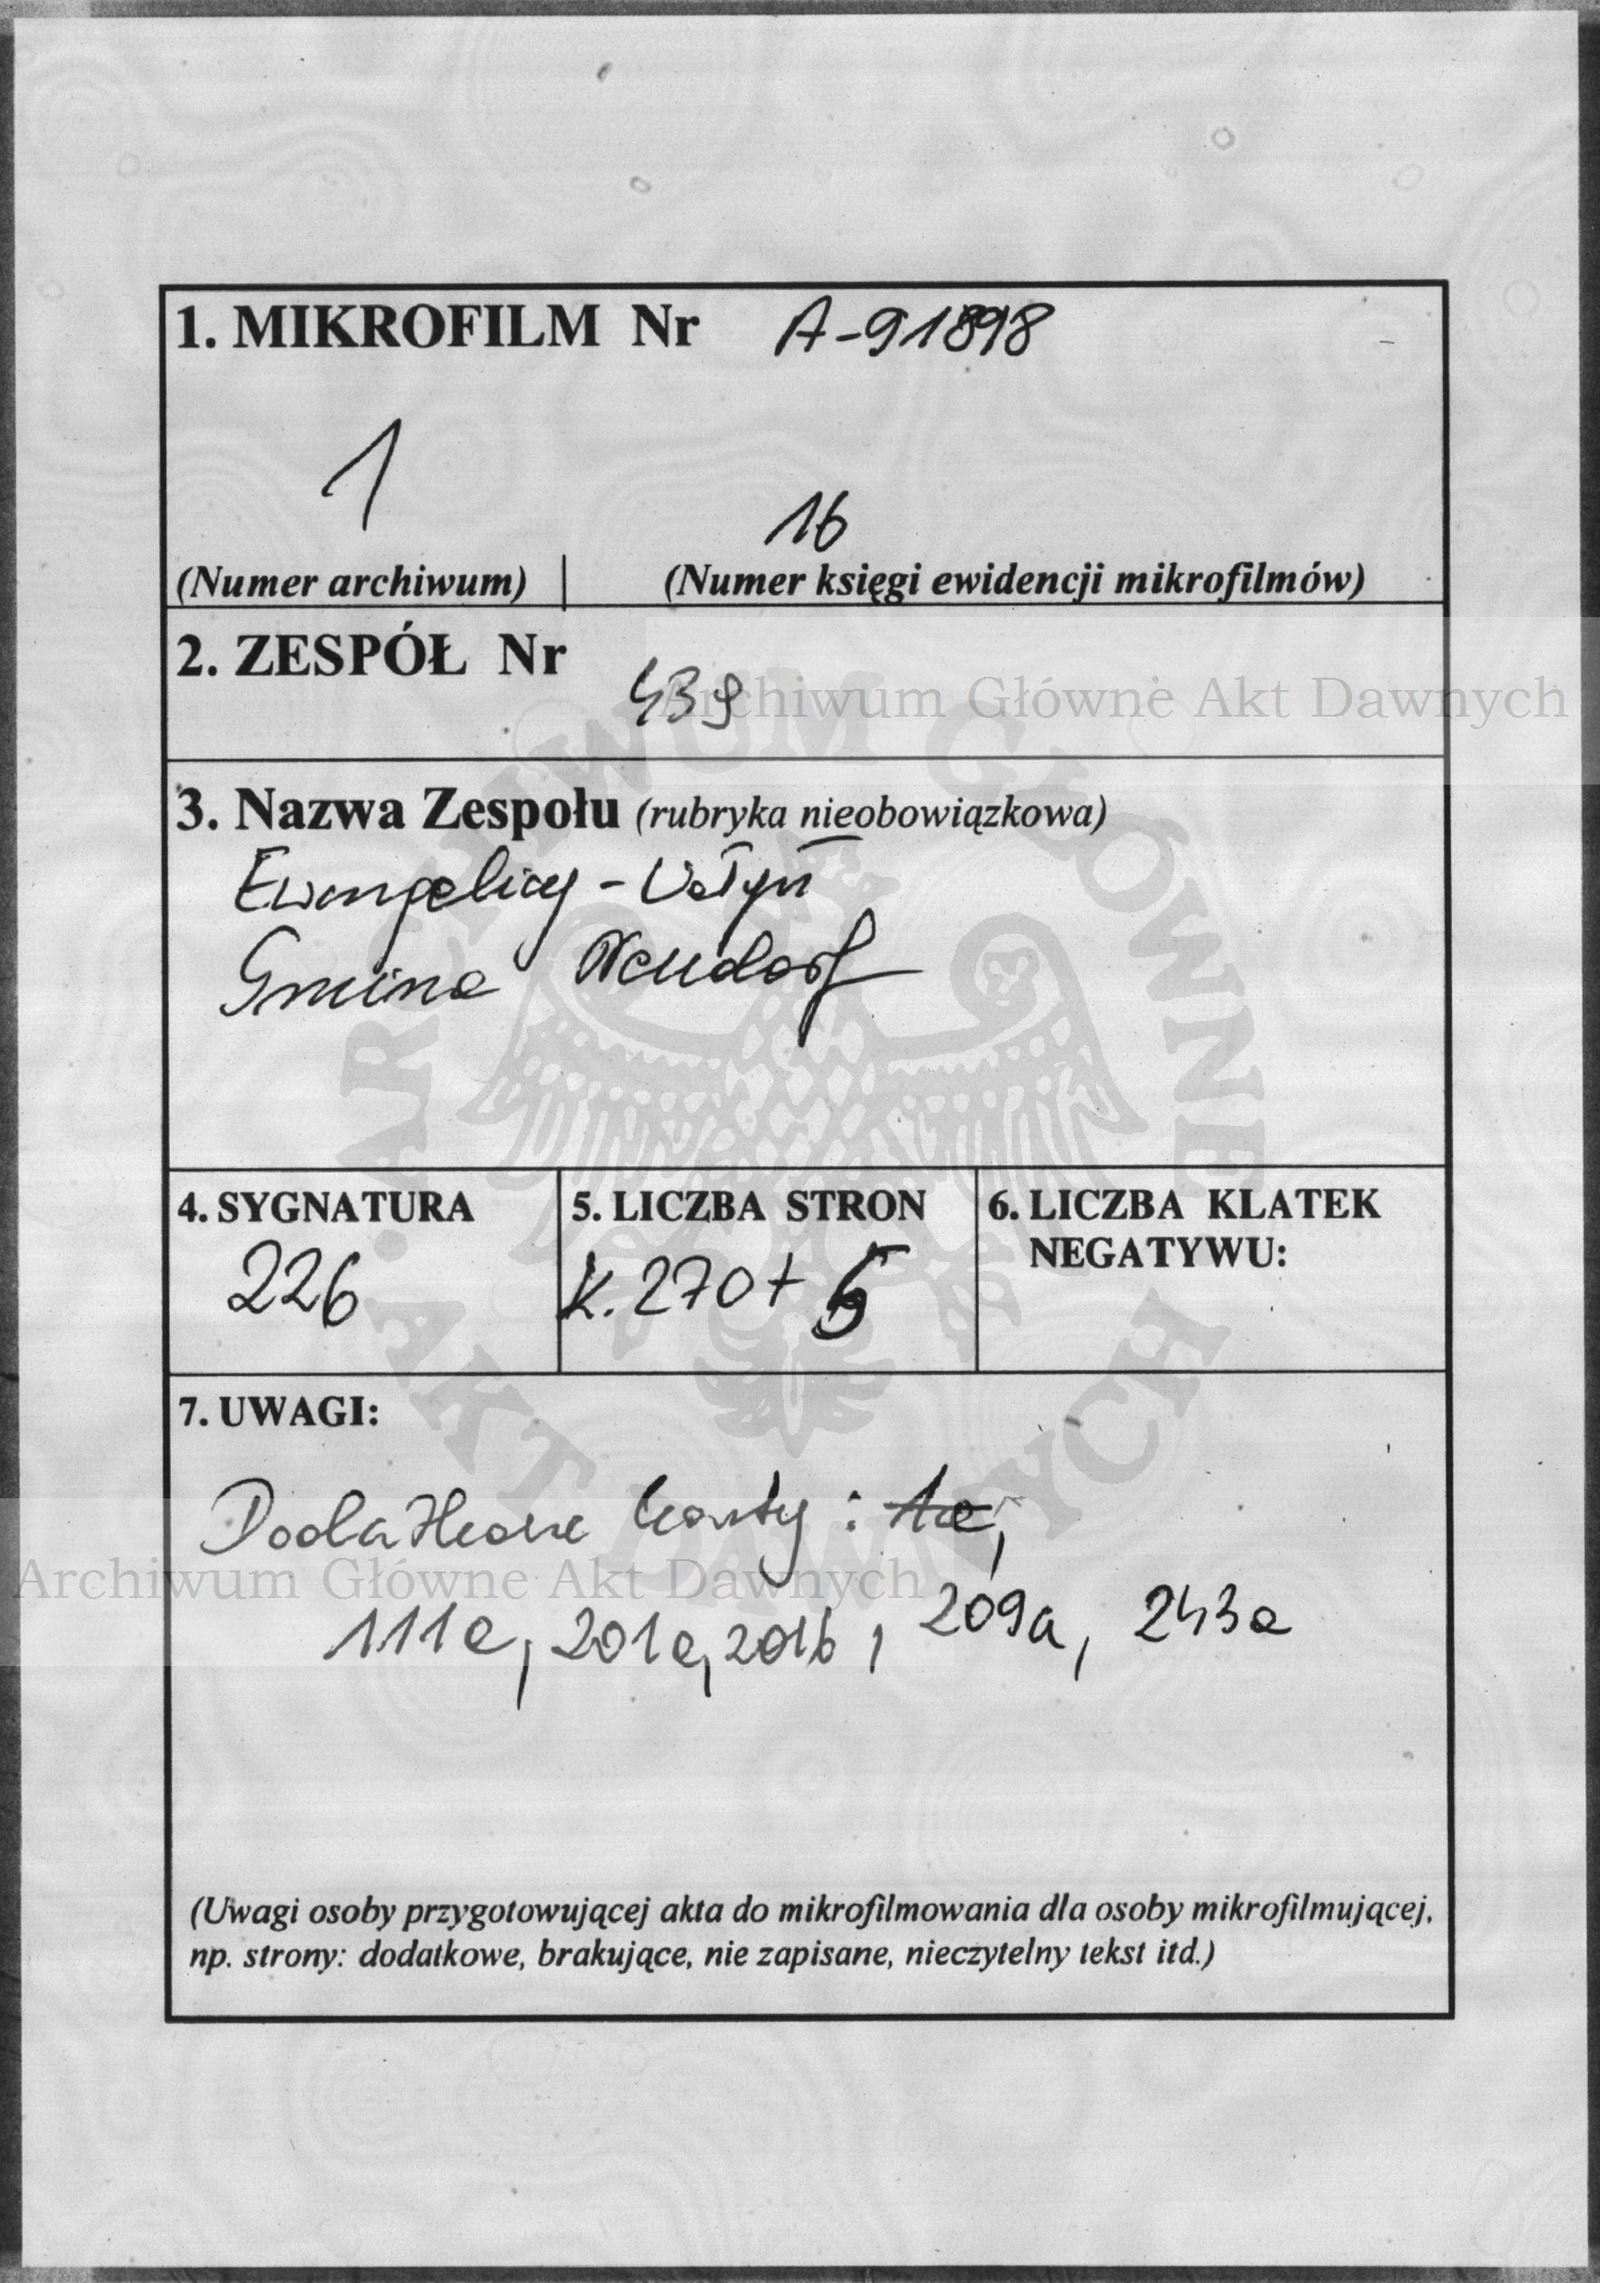 1. MIKROFILM Nr A-91898
1
16
(Numer archiwum) | (Numer księgi ewidencji mikrofilmów)
2. ZESPÓŁ Nr
439
Archiwum Główne Akt Dawnych
3. Nazwa Zespołu (rubryka nieobowiązkowa)
Ewangelicy - Wołyń
Gmina Neudorf
ARCHIWUM GŁÓWNE AKT DAWNYCH
4. SYGNATURA
226
5. LICZBA STRON
K. 270 + 5
6. LICZBA KLATEK
NEGATYWU:
7. UWAGI:
Dodatkowe karty : 1a,
Archiwum Główne Akt Dawnych
111a, 201a, 201b, 209a, 243a
(Uwagi osoby przygotowującej akta do mikrofilmowania dla osoby mikrofilmującej,
np. strony: dodatkowe, brakujące, nie zapisane, nieczytelny tekst itd.)